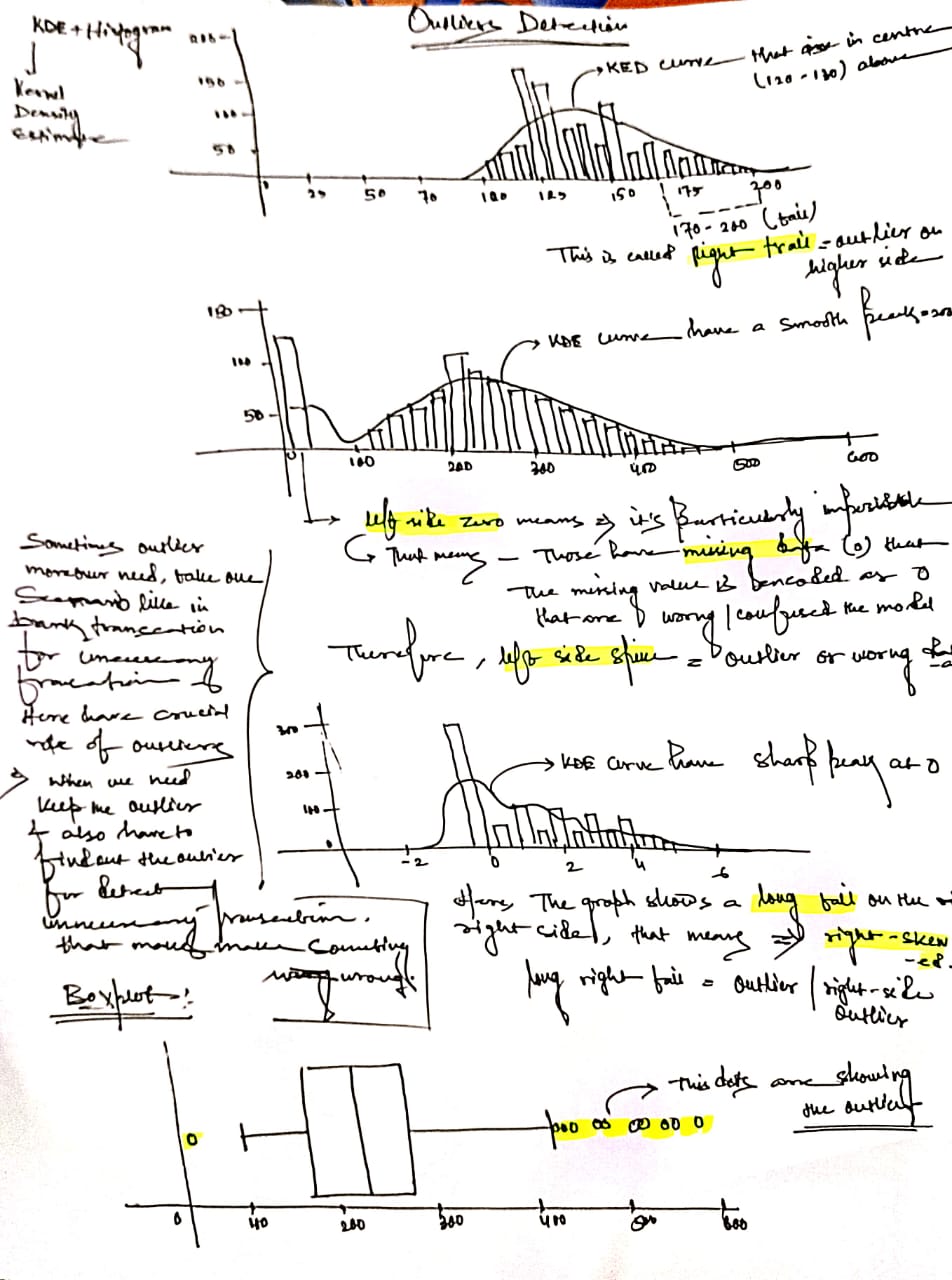 Outliers Detection
KDE + Histogram
Kernel
Density
Estimate
200
150
100
50
KED curve that rise in centre
(120 - 130) above
0 25 50 70 100 125 150 175 200
170 - 200 (tail)
This is called Right trail = outlier on
higher side
150
100
50
KDE curve have a smooth peak = 200
0 100 200 300 400 500 600
left side zero means => it's particularly impossible
That means - Those have missing data (0) that
the missing value is encoded as 0
that are wrong / confused the model
Therefore, left side spike = outlier or worng
Sometimes outlier
moreover need, take one
Scenario like in
bank transcation
for unnecessary
Here have crucial
role of outliers
=> when we need
keep the outlier
& also have to
find out the outlier
for detect
unnecessary transcation.
that make
wrong.
300
200
100
KDE curve have sharp peak at 0
-2 0 2 4 6
Here, The graph shows a long tail on the
right side, that means => right-skew
-ed.
long right tail = outlier / right-side
outlier
Boxplot -:
This dots are showing
the outlier
0 40 200 300 400 500 600